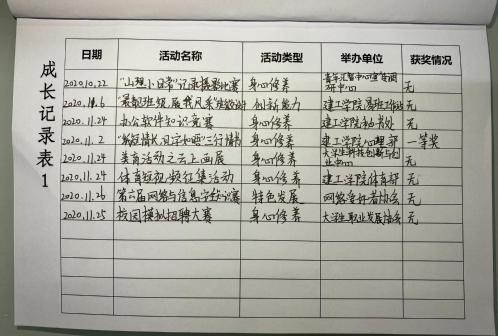 成长记录表1
日期 活动名称 活动类型 举办单位 获奖情况
2020.10.22 "山理小日常"记录摄影比赛 身心修养 青年汇智中心宣传调研中心 无
2020.11.6 "最靓班级,展我风采" 创新能力 建工学院易班工作站 无
2020.11.24 办公软件知识竞赛 身心修养 建工学院秘书处 无
2020.11.2 三行情书 身心修养 建工学院心理部 一等奖
2020.11.24 美育活动之云上画展 身心修养 大学生科技创新与创业中心 无
2020.11.24 体育短视频征集活动 身心修养 建工学院体育部 无
2020.11.26 第六届网络与信息安全知识赛 特色发展 网络爱好者协会 无
2020.11.25 校园模拟招聘大赛 身心修养 大学生职业发展协会 无